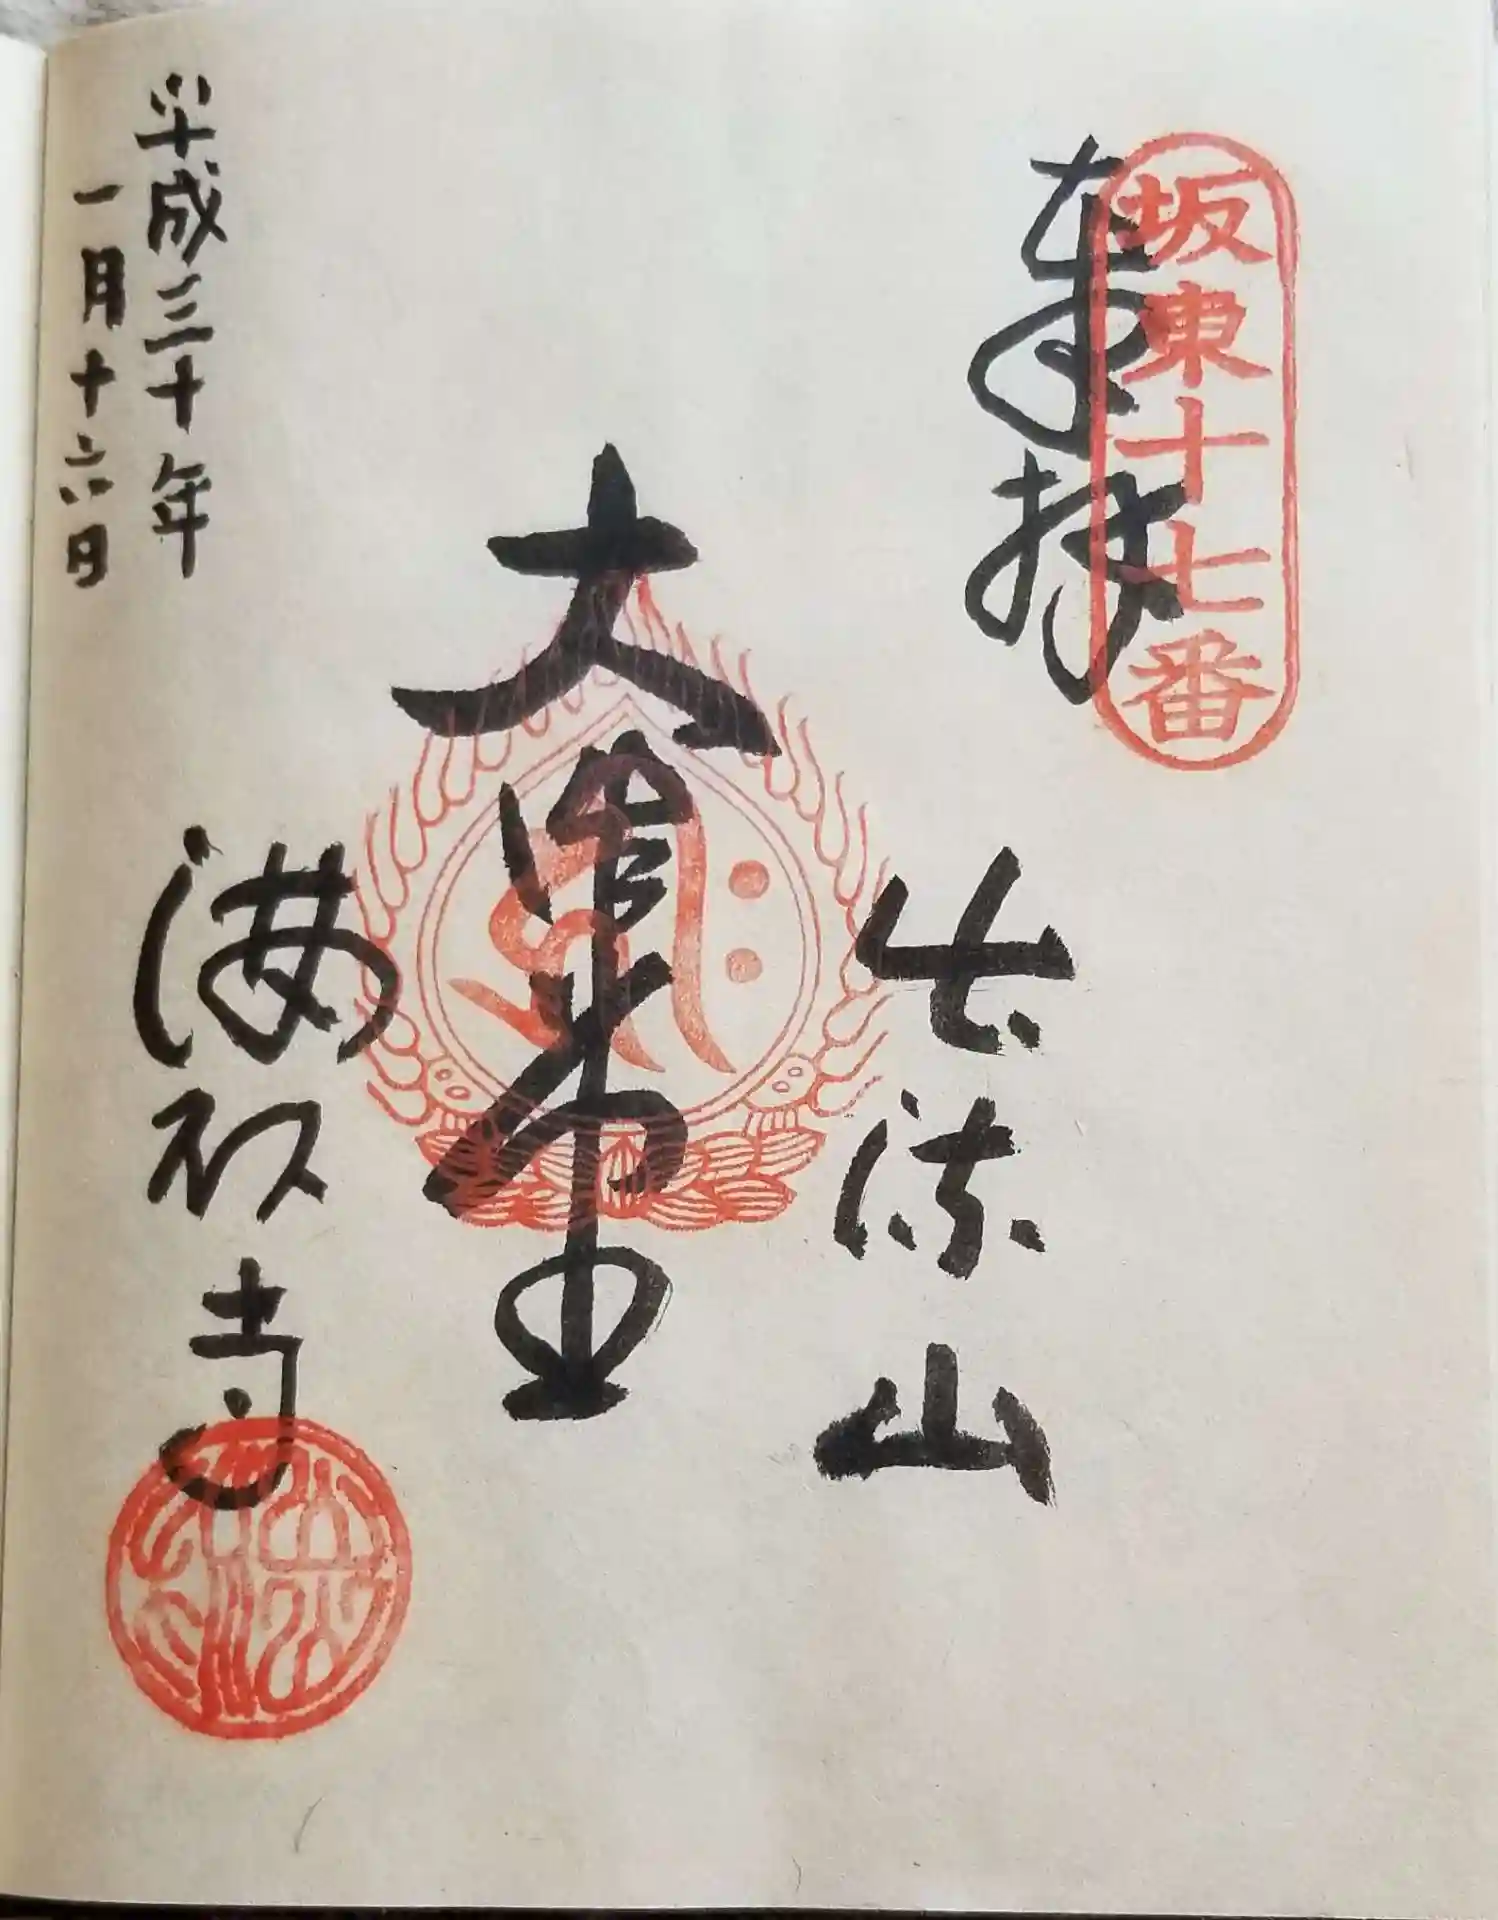 坂東十七番
奉拝
出流山
大
満願寺
平成三十年
一月十六日